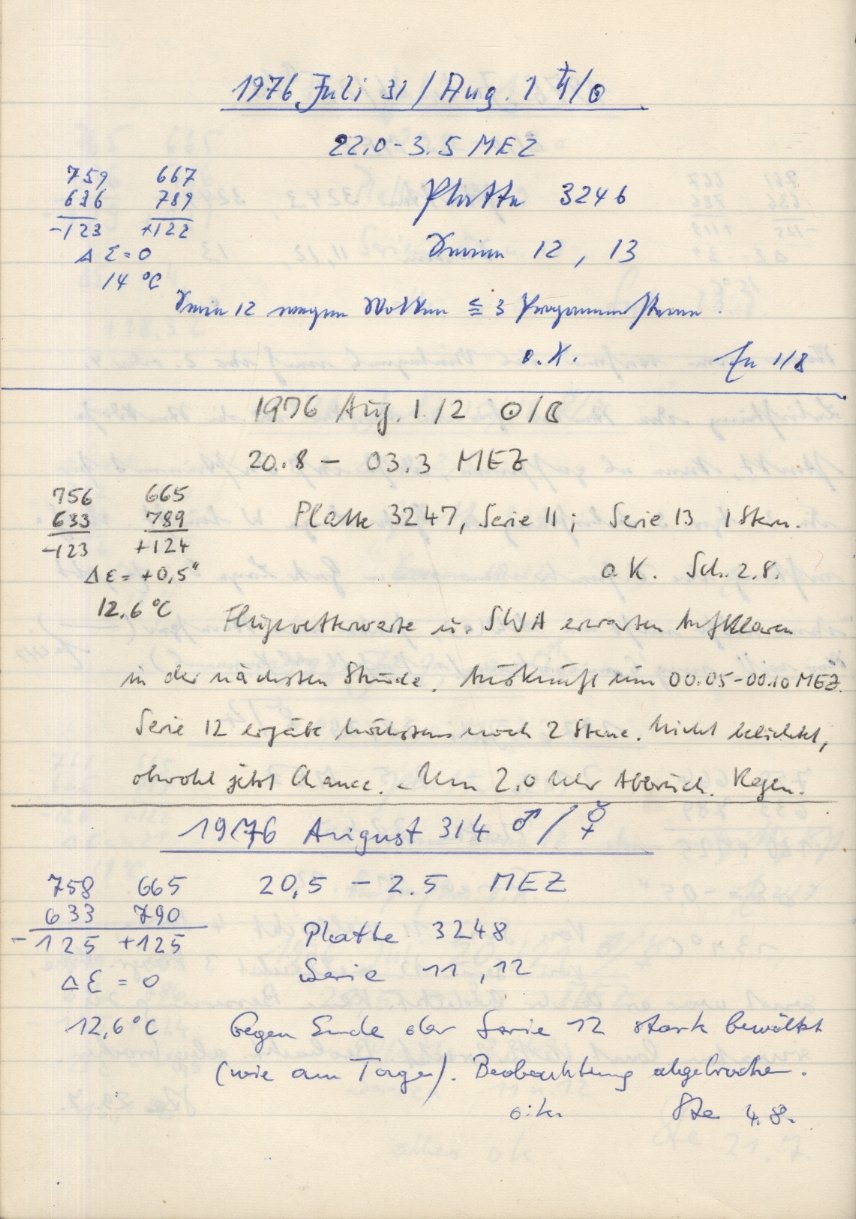 1976 Juli 31 / Aug. 1 ♄/☉
22.0-3.5 MEZ
759 667
636 789
-123 +122
Platte 3246
Δ Ɛ = 0
Serien 12, 13
14 °C
Serie 12 wegen Wolken ≦ 3 Programmsterne.
o.K. 1/8
1976 Aug. 1./2 ☉/☾
20.8 - 03.3 MEZ
756 665
633 789
-123 +124
Platte 3247, Serie 11; Serie 13 1 Stern.
Δ Ɛ = +0,5"
o.K. Sch. 2.8.
12.6°C
Flugwetterwarte u. SWA erwarten Aufklaren
in der nächsten Stunde. Auskunft um 00.05-00.10 MEZ.
Serie 12 ergäbe höchstens noch 2 Sterne. Nicht belichtet,
obwohl jetzt Chance. - Um 2.0 Uhr Abbruch. Regen.
1976 August 3/4 ♂/☿
758 665
633 790
-125 +125
20,5 - 2.5 MEZ
Platte 3248
Serie 11, 12
Δ Ɛ = 0
12,6°C
Gegen Ende der Serie 12 stark bewölkt
(wie am Tage). Beobachtung abgebrochen.
o.k. Ste 4.8.